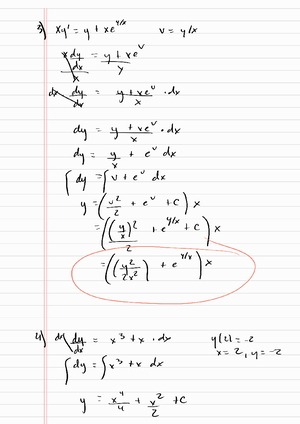 3) xy' = y + xe^{y/x}   v = y/x
x dy/dx / x = y + xe^v / x
dx dy/dx = y + xe^v / x · dx
dy = y + xe^v / x · dx
dy = y/x + e^v dx
∫ dy = ∫ v + e^v dx
y = (v^2/2 + e^v + C) x
= ((y/x)^2 / 2 + e^{y/x} + C) x
= ((y^2/2x^2) + e^{y/x}) x
4) dx dy/dx = x^3 + x · dx   y(2) = -2
∫ dy = ∫ x^3 + x dx   x = 2, y = -2
y = x^4/4 + x^2/2 + C